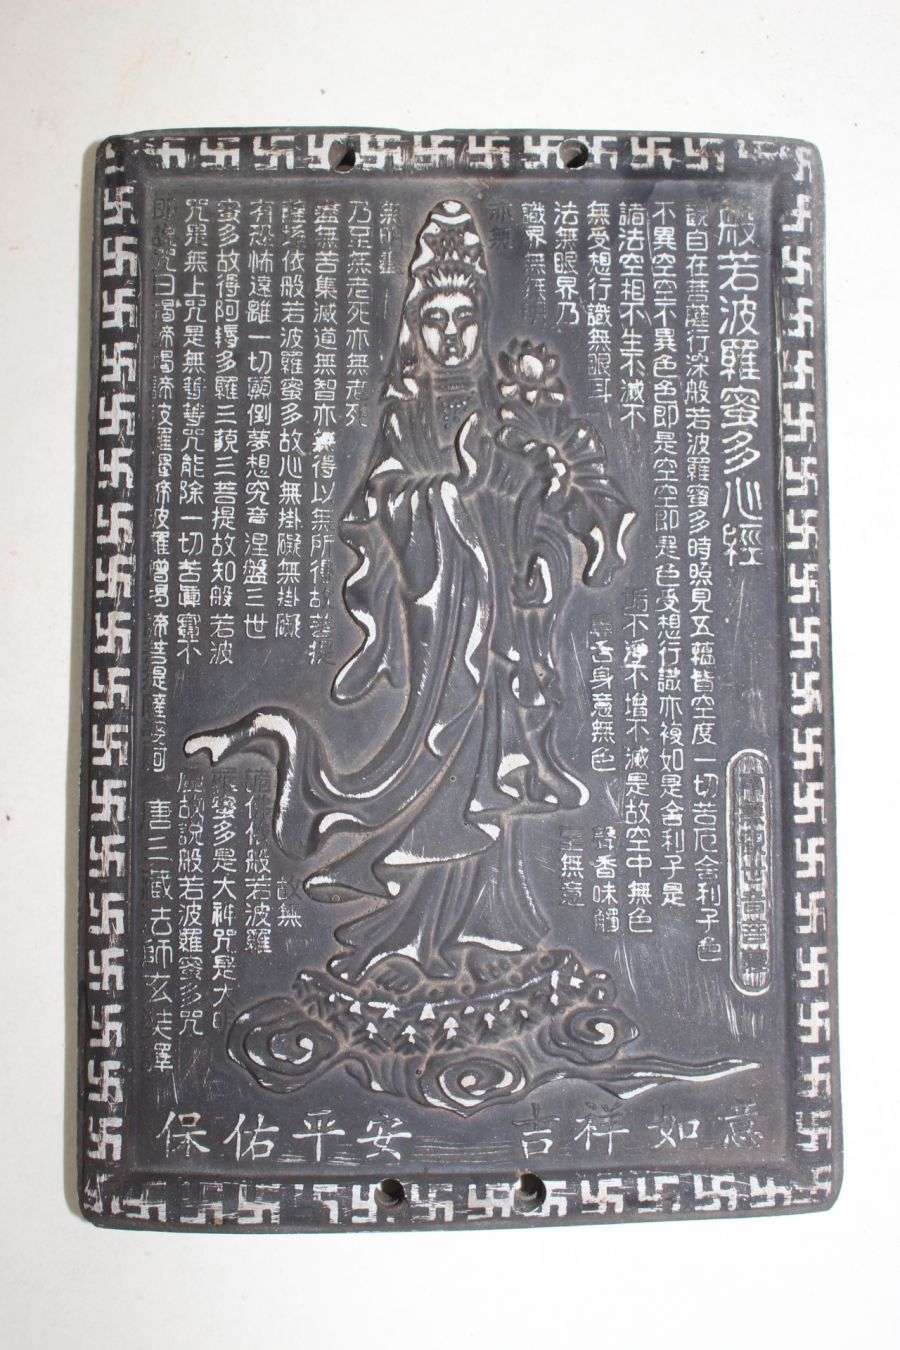 般若波羅蜜多心經
觀自在菩薩行深般若波羅蜜多時照見五蘊皆空度一切苦厄舍利子色
不異空空不異色色即是空空即是色受想行識亦複如是舍利子是
諸法空相不生不滅不垢不淨不增不滅是故空中無色
無受想行識無眼耳鼻舌身意無色聲香味觸
法無眼界乃至無意
識界無無明
亦無
無明盡
乃至無老死亦無老死
盡無苦集滅道無智亦無得以無所得故菩提
薩埵依般若波羅蜜多故心無掛礙無掛礙故無
有恐怖遠離一切顛倒夢想究竟涅盤三世諸佛依般若波羅
蜜多故得阿耨多羅三藐三菩提故知般若波羅蜜多是大神咒是大明
咒是無上咒是無等等咒能除一切苦真實不虛故說般若波羅蜜多咒
即說咒曰揭帝揭諦波羅揭帝波羅僧揭帝菩提薩婆訶 唐三藏法師玄奘譯
保佑平安 吉祥如意